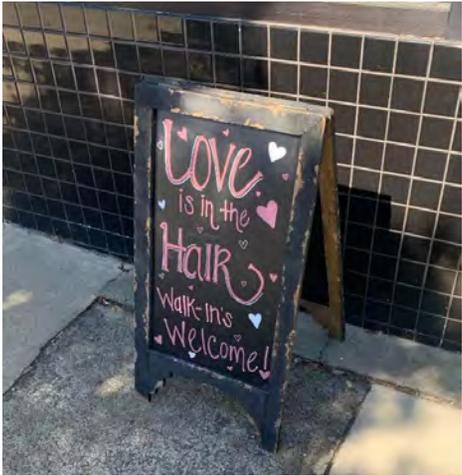 Love
is in the
Hair
Walk-In's
Welcome!